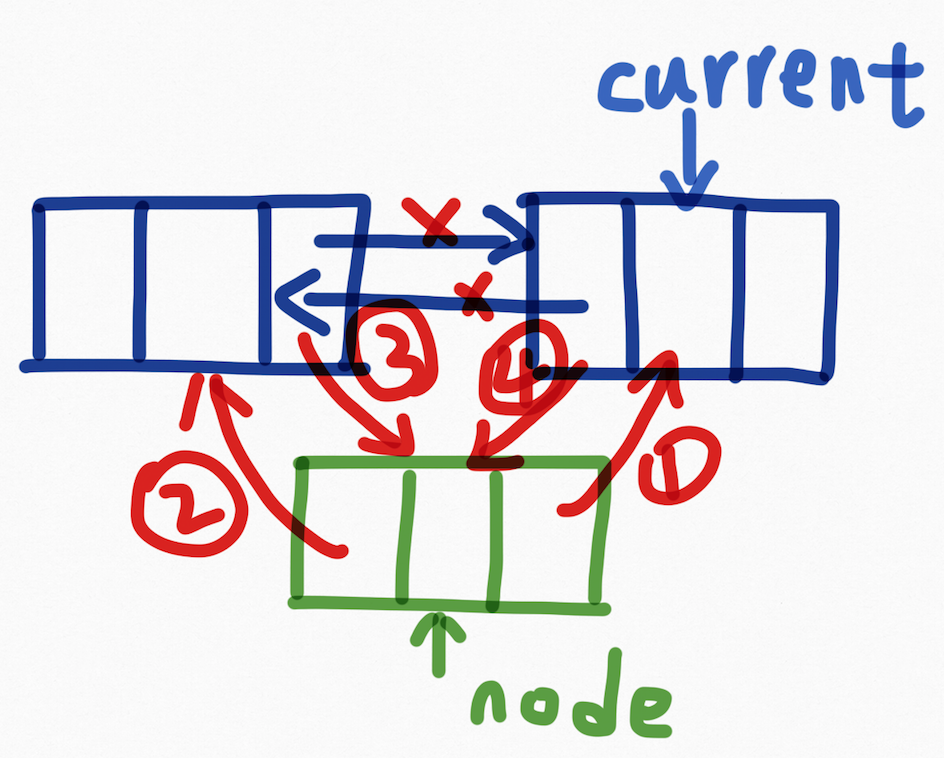 current
x
x
③ ④
② ①
node